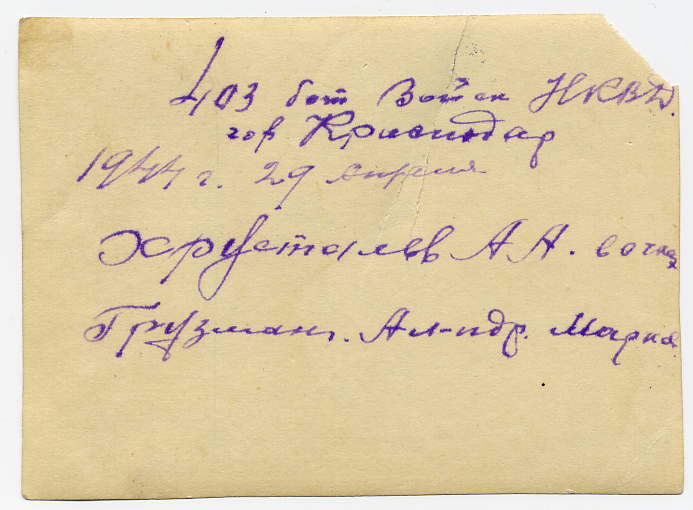 403 бат Войск НКВД.
гор Краснодар
1944 г. 29 апреля
Хрусталев А А.
Грузман. Ал-ндр. Марка